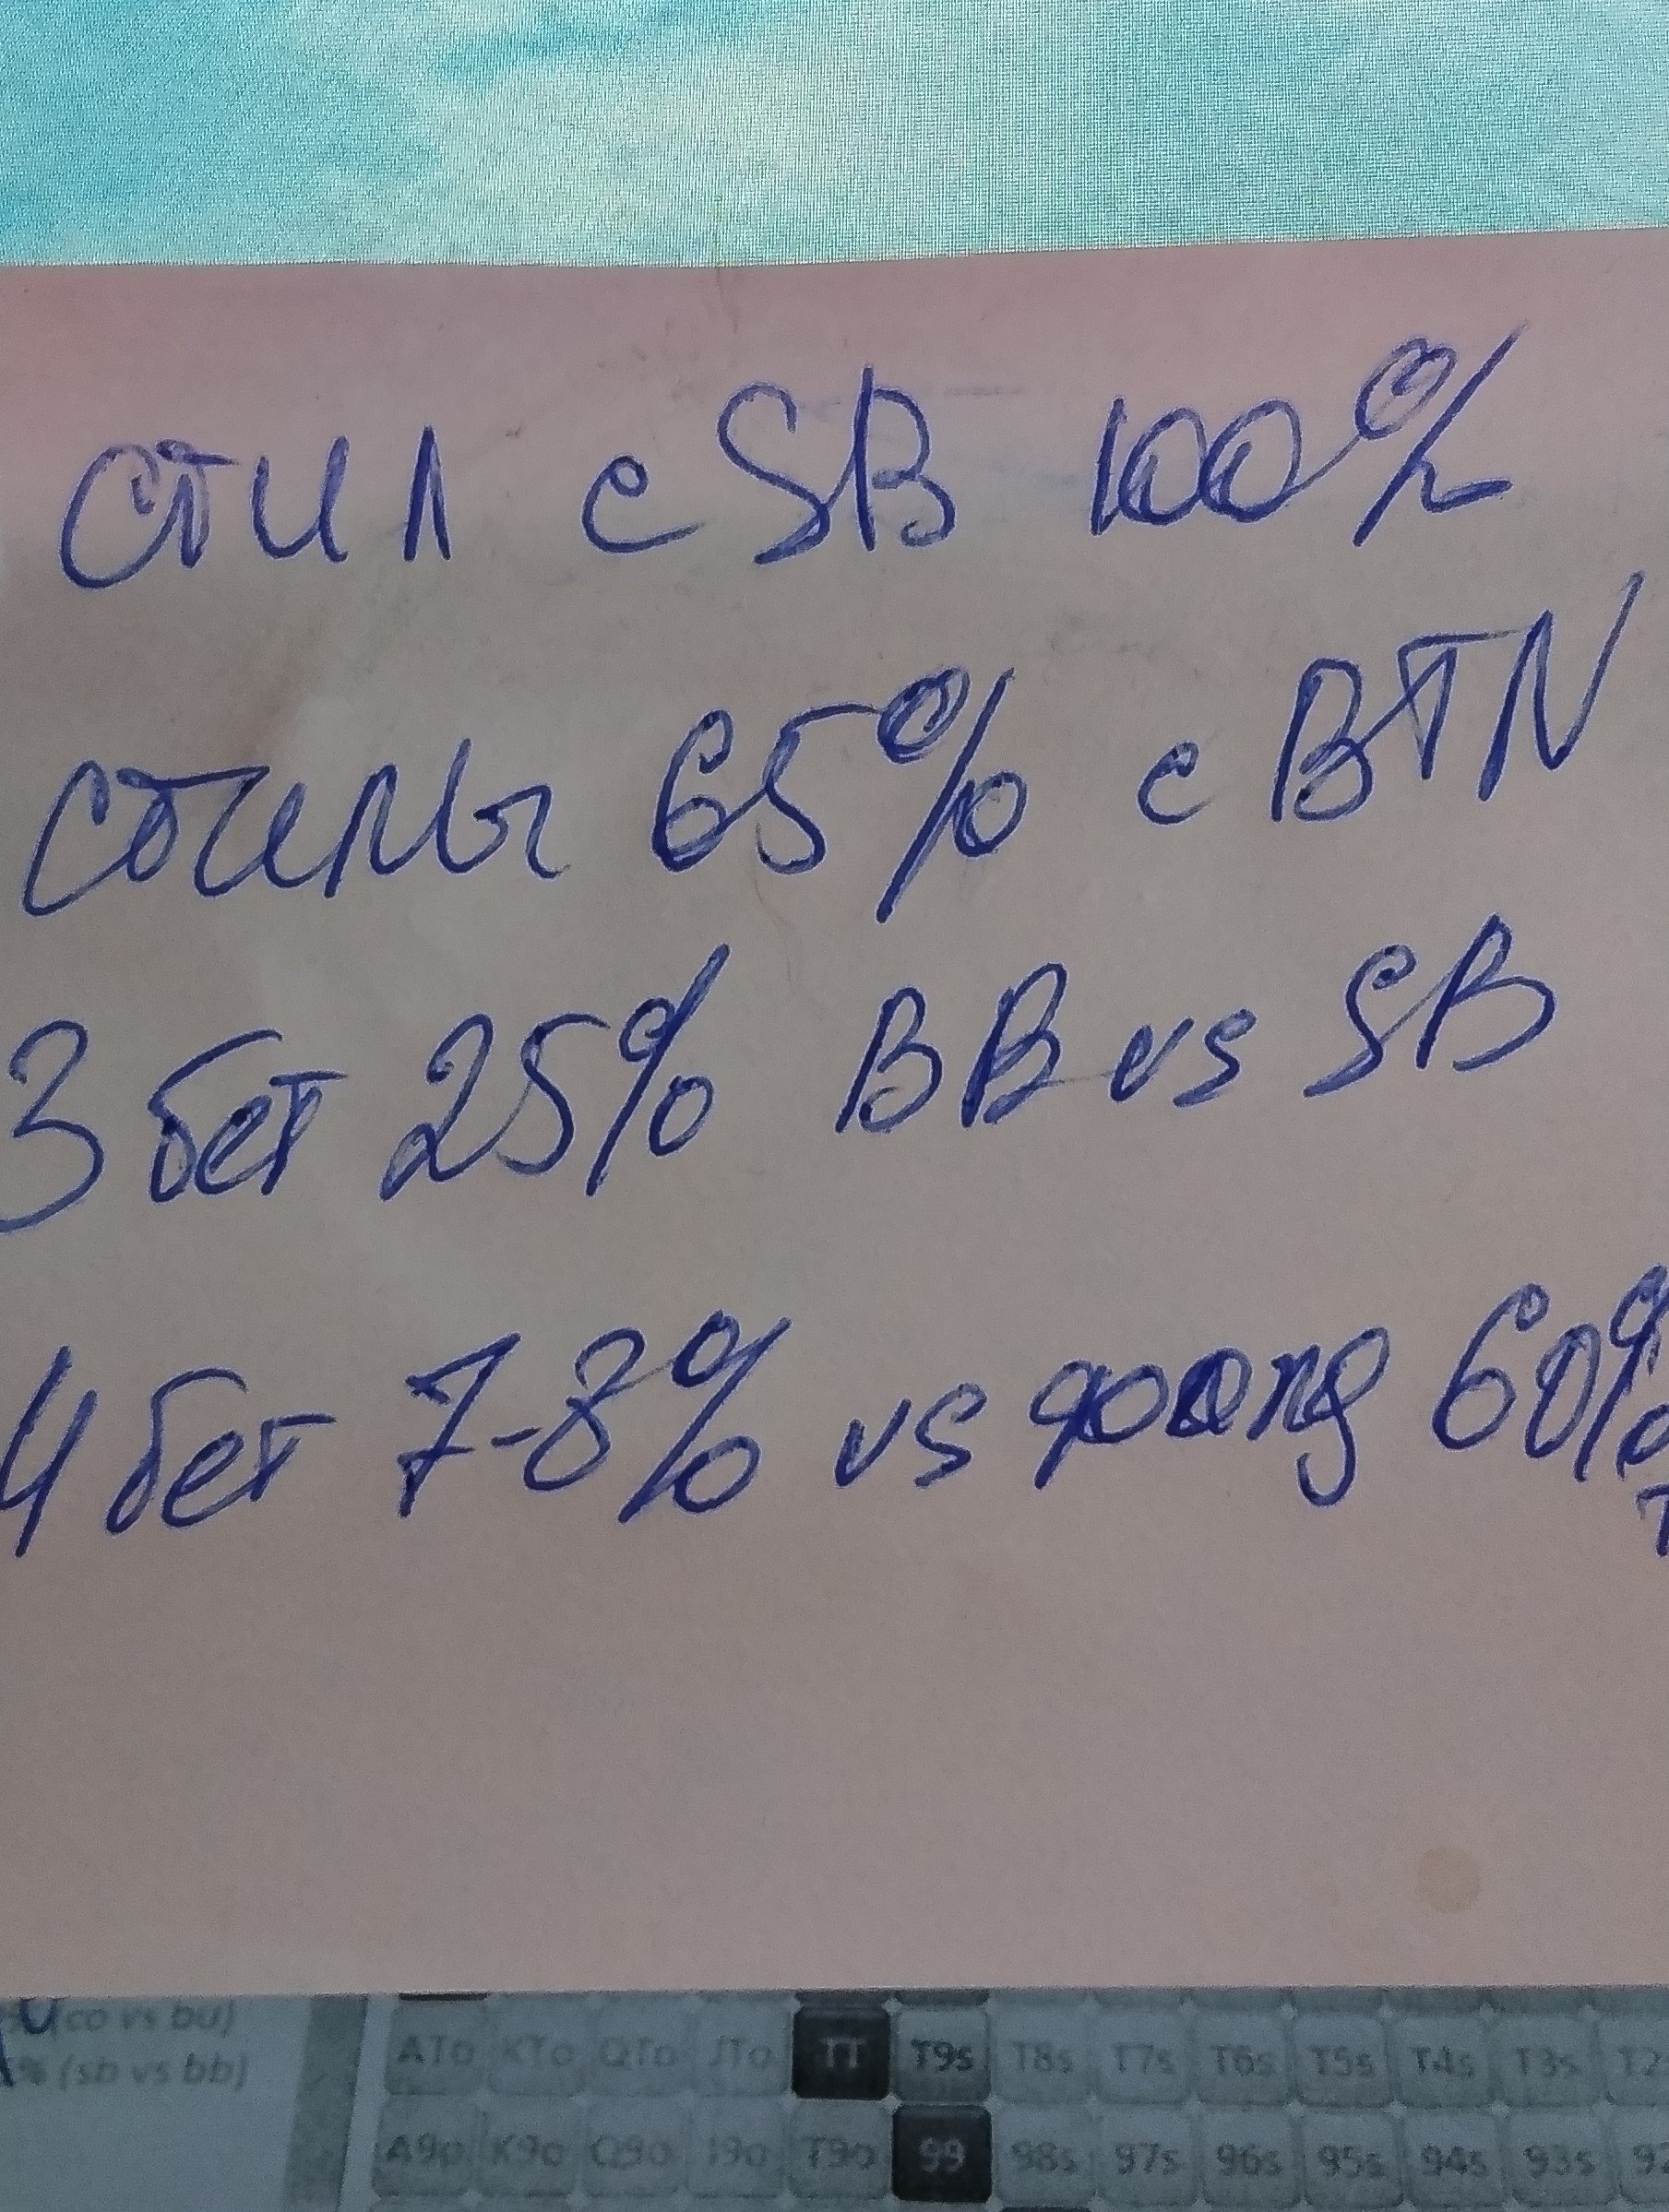 стил с SB 100%
стилы 65% с BTN
3 бет 25% BB vs SB
4 бет 7-8% vs фолд 60%
(co vs bu)
% (sb vs bb)
ATo KTo QTo JTo TT T9s T8s T7s T6s T5s T4s T3s
A9o K9o Q9o J9o T9o 99 98s 97s 96s 95s 94s 93s